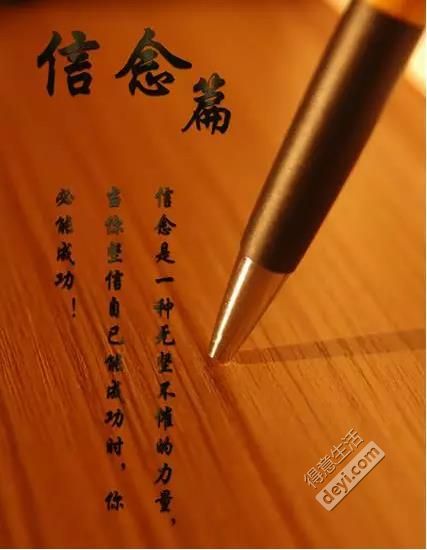 信念篇
信念是一种无坚不摧的力量，
当你坚信自己能成功时，你
必能成功！
得意生活
deyi.com